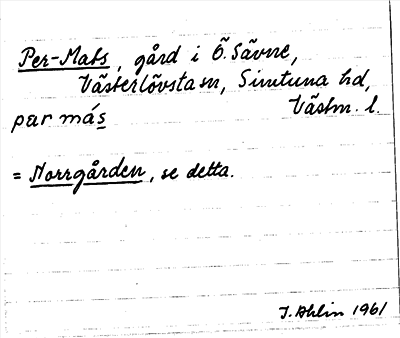 Per-Mats, gård i Ö. Sävne,
Västerlövsta sn, Simtuna hd,
Västm. l.
par más
= Norrgården, se detta.
I. Ahlin 1961